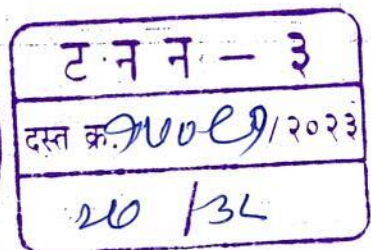 ट न न — ३
दस्त क्र. १५०९१/२०२३
२७ /३८